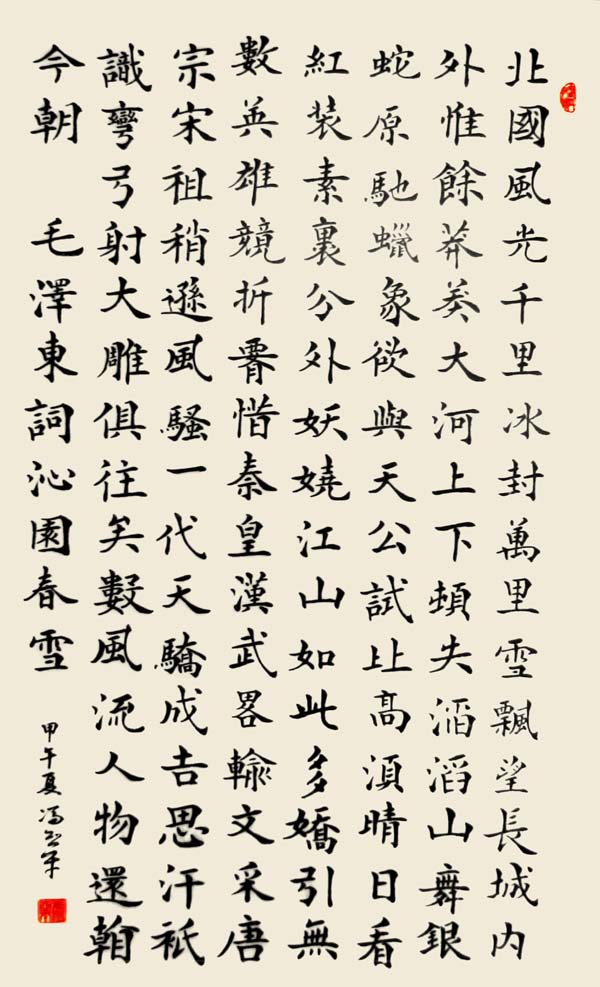 北國風光千里冰封萬里雪飄望長城内
外惟餘莽莽大河上下頓失滔滔山舞銀
蛇原馳蠟象欲與天公試比高須晴日看
紅装素裏分外妖嬈江山如此多嬌引無
數英雄競折腰惜秦皇漢武畧輸文采唐
宗宋祖稍遜風騷一代天驕成吉思汗祇
識彎弓射大雕俱往矣數風流人物還看
今朝 毛澤東詞沁園春雪
甲午夏